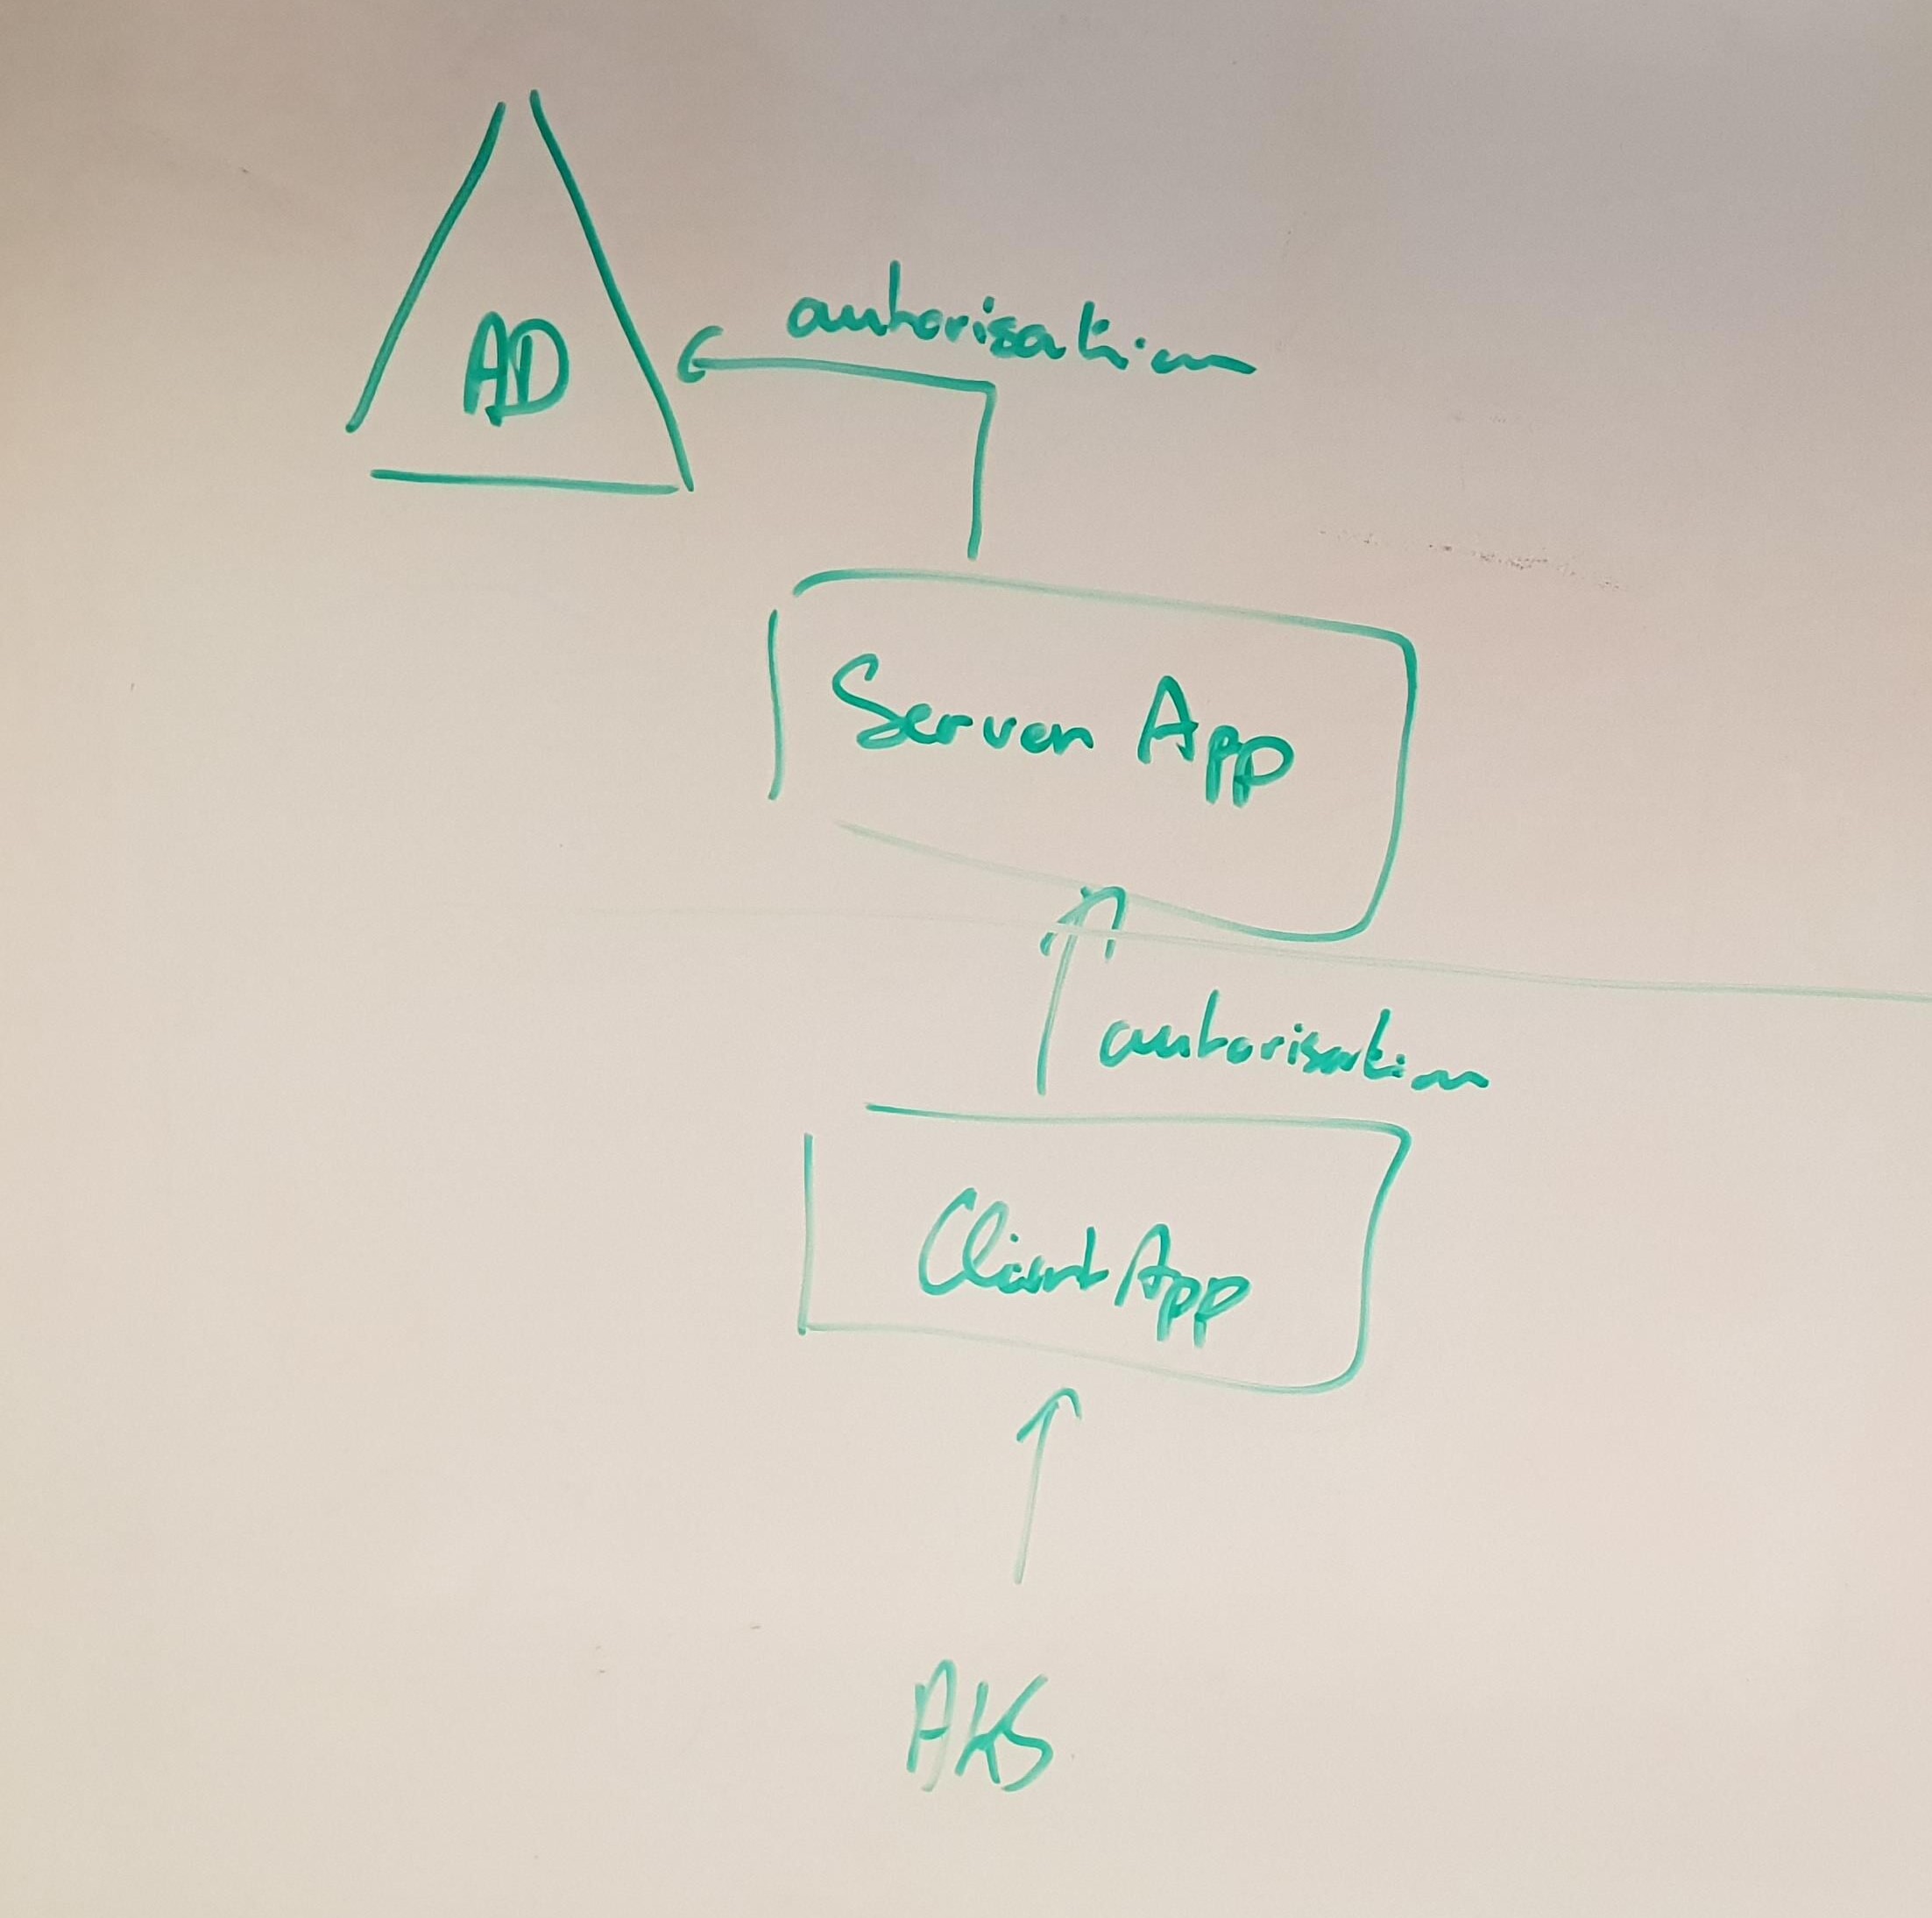 autorisation
AD
Server App
autorisation
Client App
AKS